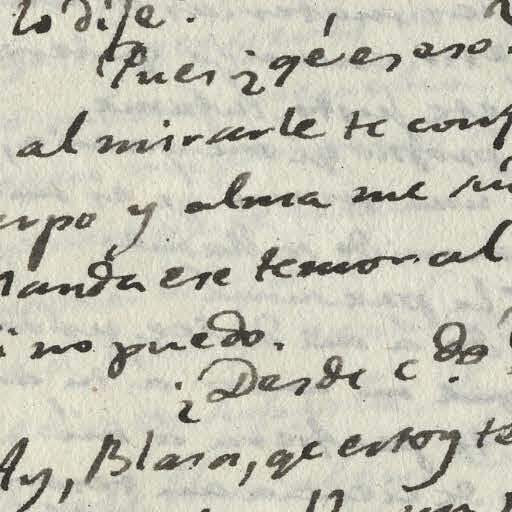 lo dije.
Pues ¿qé es eso
al mirarle te conf
erpo y alma me
Manda ese temor al
i no puedo.
¿Desde c
Ay, Blasa, qe estoy te